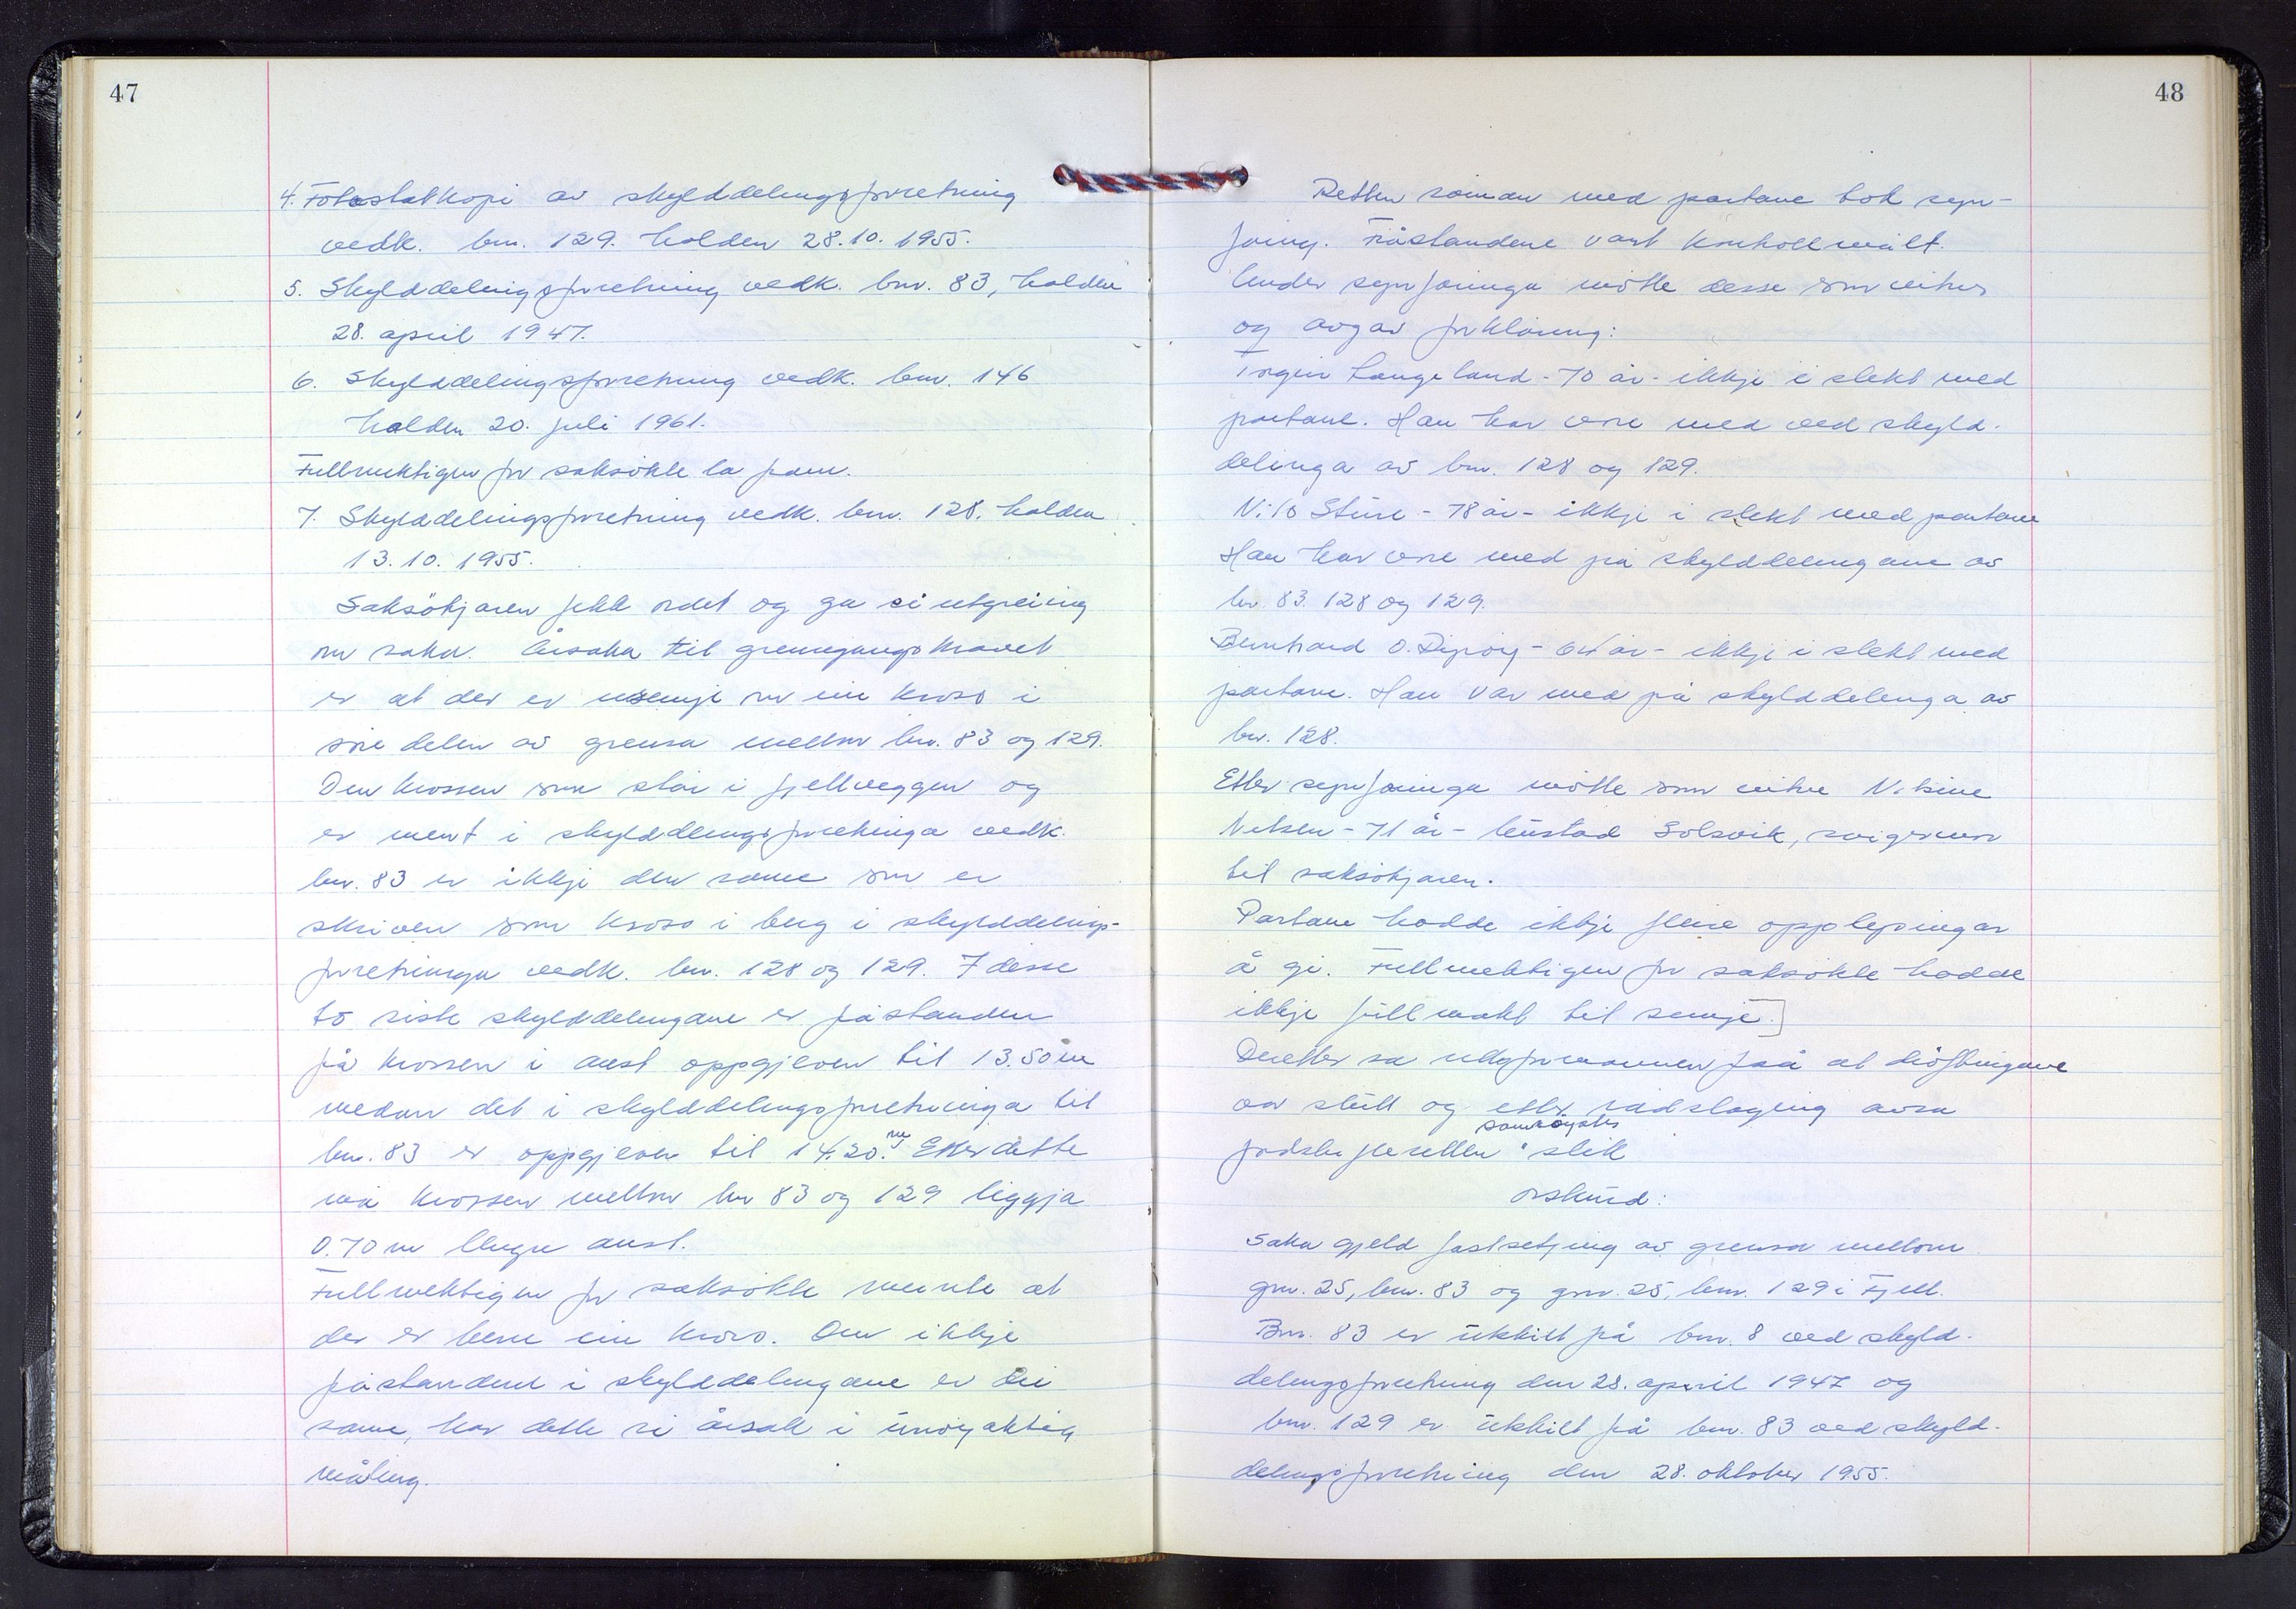 47
4. Fotostatkopi av skylddelingsforretning
vedk. bnr. 129. holden 28.10.1955.
5. Skylddelingsforretning vedk. bnr. 83, holden
28. april 1947.
6. Skylddelingsforretning vedk. bnr. 146
holden 20. juli 1961.
Fullmektigen for saksökte la fram.
7. Skylddelingsforretning vedk. bnr. 128. holden
13.10.1955.
Saksökjaren fekk ordet og ga ei utgreiing
om saka. Årsaka til grensegangskravet
er at der er usemje om ein kross i
søre delen av grensa mellom bnr. 83 og 129.
Den krossen som står i fjellveggen og
er nemt i skylddelingsforretninga vedk.
bnr. 83 er ikkje den same som er
skriven som kross i berg i skylddelings-
forretninga vedk. bnr. 128 og 129. I desse
to siste skylddelingane er fråstanden
frå krossen i aust oppgjeven til 13.50 m
medan det i skylddelingsforretninga til
bnr. 83 er oppgjeven til 14.20. m Etter dette
må krossen mellom bnr 83 og 129 liggja
0.70 m lengre aust.
Fullmektigen for saksökte meinte at
der er berre ein kross. Om ikkje
fråstandene i skylddelingane er dei
same, har dette si årsak i unöyaktig
måling.
48
Retten saman med partane tok syn-
faring. Fråstandene vart kontrollmålt.
Under synfaringa mötte desse som vitner
og avgav forklaring:
Torgeir Langeland - 70 år - ikkje i slekt med
partane. Han har vore med ved skyld-
delinga av bnr. 128 og 129.
Nils Sture - 78 år - ikkje i slekt med partane
Han har vore med på skylddelingane av
bnr. 83. 128 og 129.
Bernhard O. - 64 år - ikkje i slekt med
partane. Han var med på skylddelinga av
bnr. 128.
Etter synfaringa mötte som vitne
- 71 år - bustad Solsvik, svigermor
til saksökjaren.
Partane hadde ikkje fleire opplysingar
å gi. Fullmektigen for saksökte hadde
ikkje fullmakt til semje.]
Deretter sa rettsformannen frå at dröftingane
var slutt og etter rådslaging avsa
samröystes
jordskifteretten slik
orskurd:
Saka gjeld fastsetjing av grensa mellom
gnr. 25, bnr. 83 og gnr. 25, bnr. 129 i Fjell.
Bnr. 83 er utskilt frå bnr. 8 ved skyld-
delingsforretning den 28. april 1947 og
bnr. 129 er utskilt frå bnr. 83 ved skyld-
delingsforretning den 28. oktober 1955.